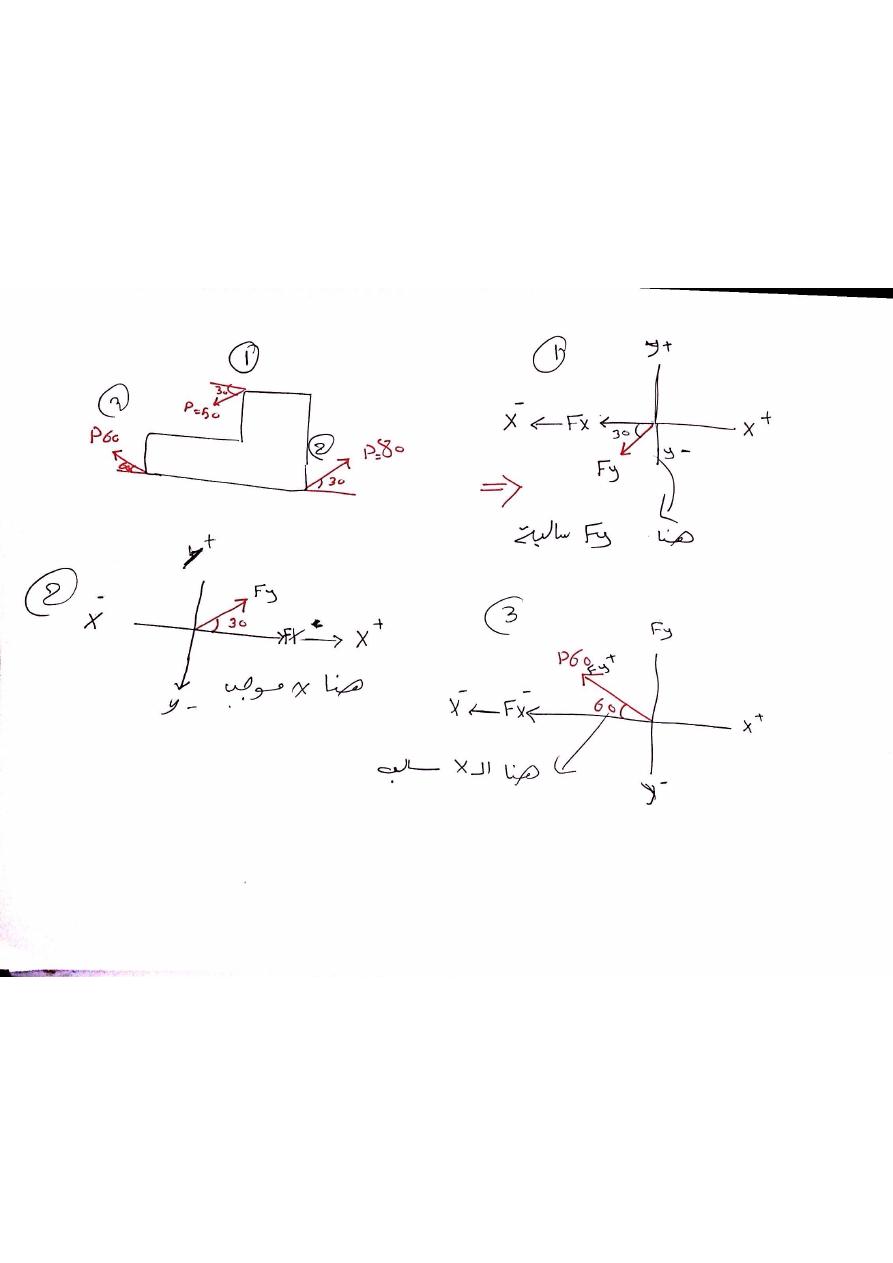 1
30
P=50
3
P60
60
2
P=80
30
1
y+
X-
Fx
X+
30
Fy
y-
هنا Fy سالبة
2
y+
X-
Fy
30
Fx
X+
y-
هنا x موجب
3
Fy
P60
Fy+
X-
Fx-
60
X+
هنا الـ X سالب
y-